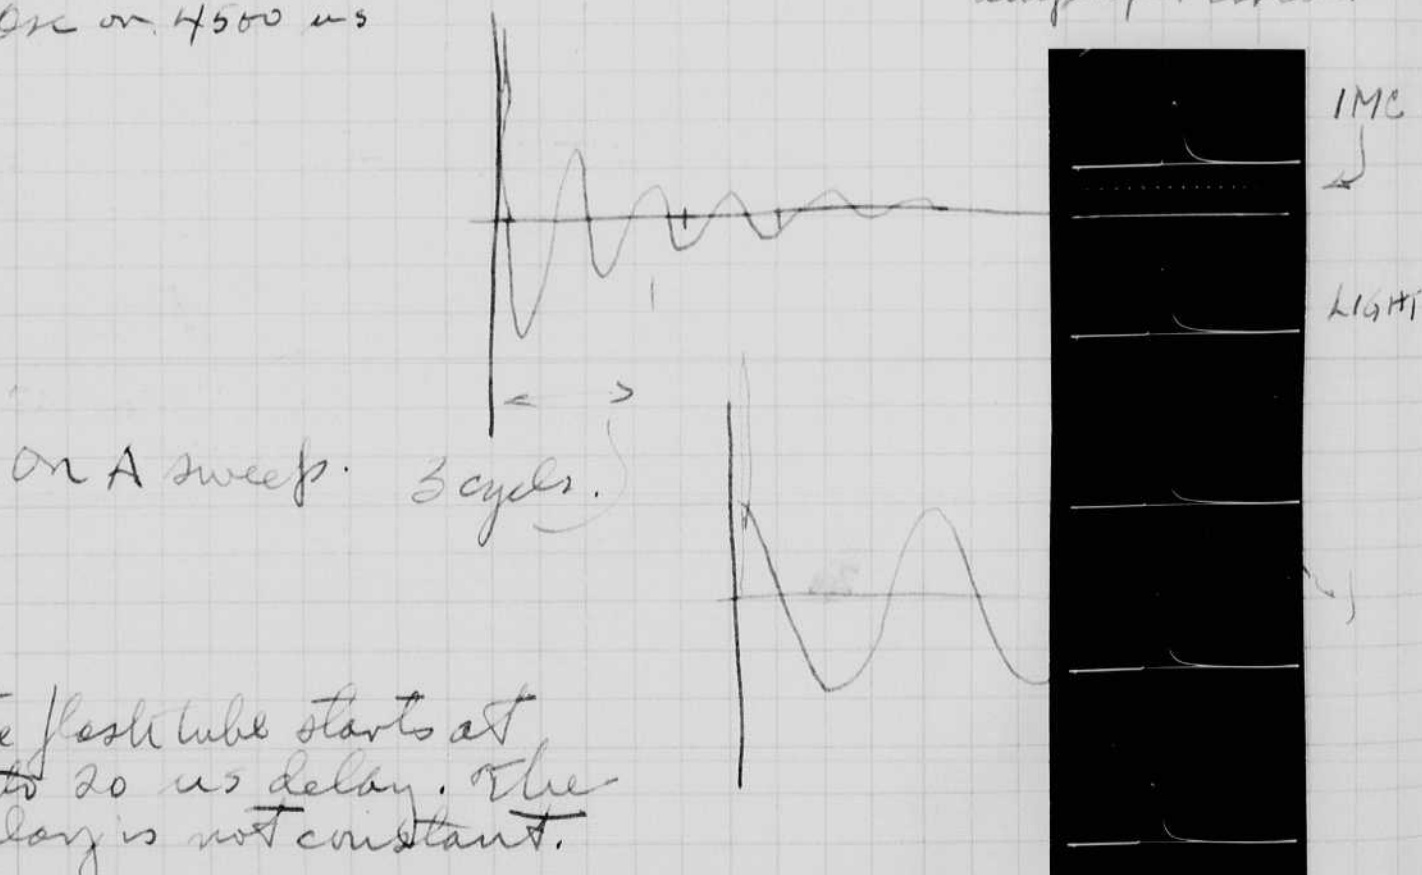 on 4500 us
IMC
LIGHT
on A sweep. 3 cycles.
flash tube starts at
to 20 us delay. The
is not constant.